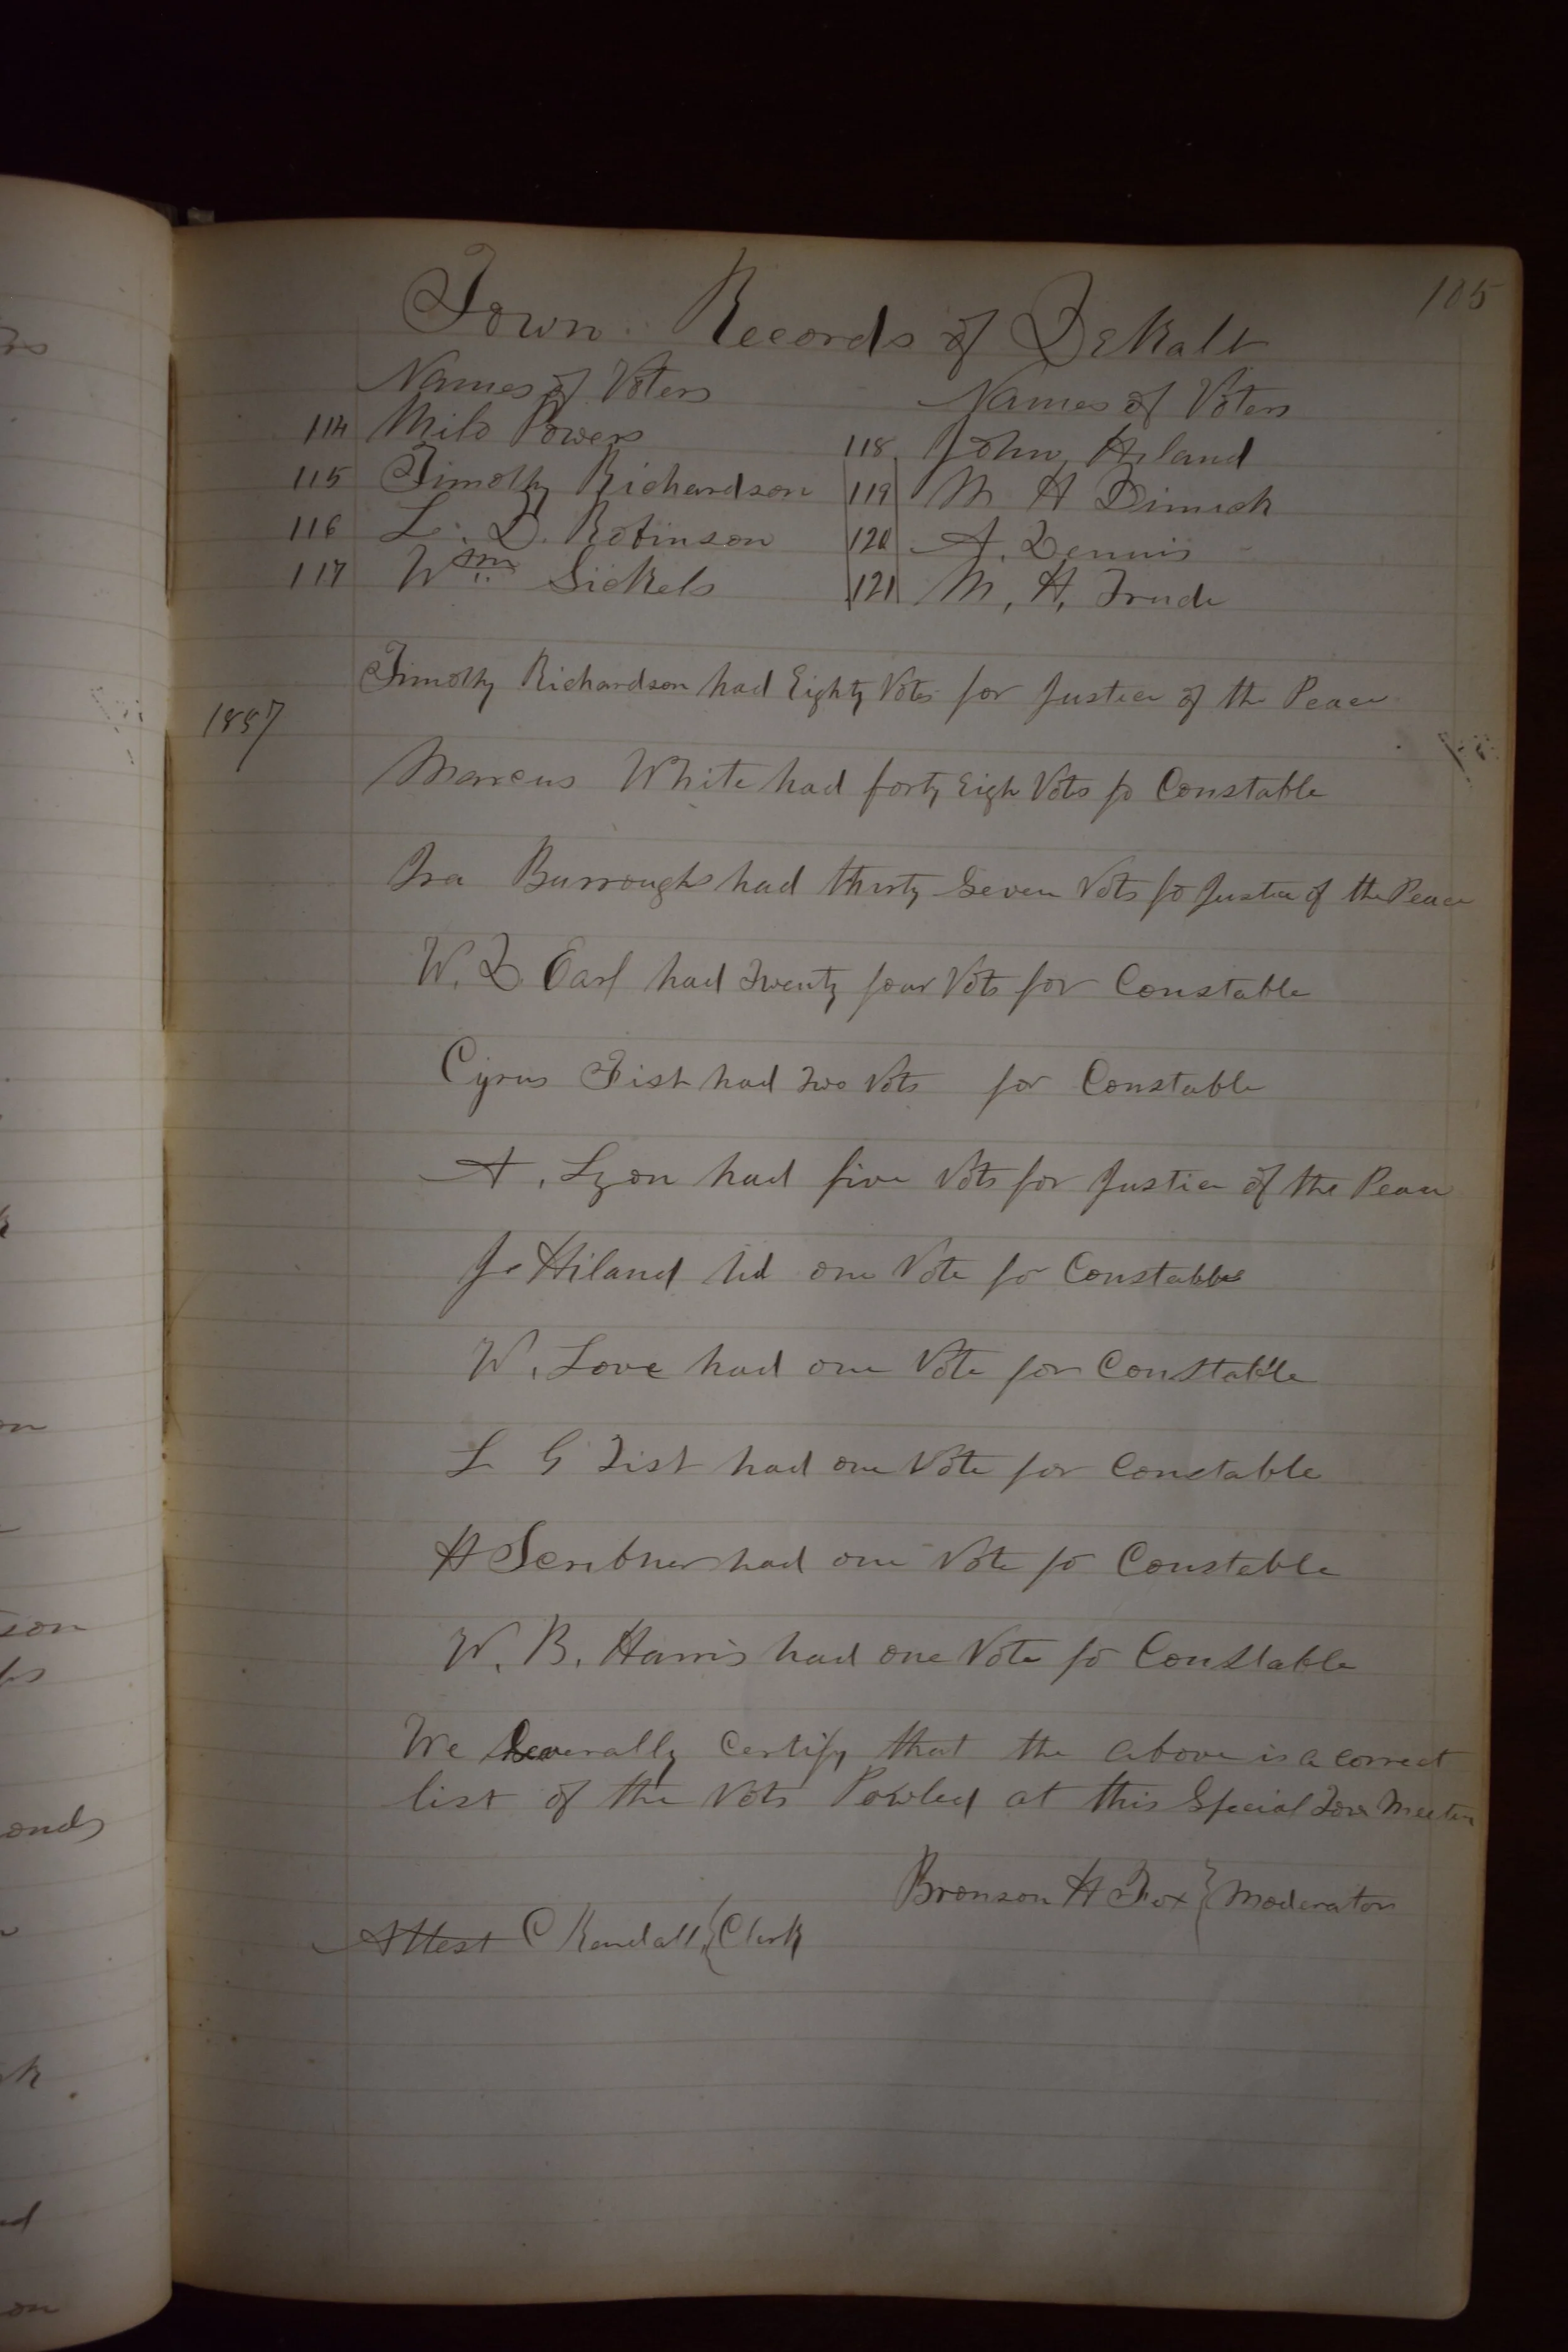 105
Town Records of DeKalb
Names of Voters
114 Milo Powers
115 Timothy Richardson
116 L. D. Robinson
117 Wm Sickels
Names of Voters
118 John Hiland
119 M H Dimick
120 A. Dennis
121 M, H, Trude
Timothy Richardson had Eighty Votes for Justice of the Peace
1857
Marcus White had forty Eigh Vots fo Constable
Ira Burroughs had thirty Seven Vots fo Justice of the Peace
W. D. Earl had Twenty four Vots for Constable
Cyrus Fisk had Two Vots for Constable
A. Lyon had five Vots for Justice of the Peace
J. Hiland hd one Vote fo Constable
W. Love had one Vote for Constable
L G had one Vote for Constable
H Scribner had one Vote fo Constable
W. B. Harris had one Vote fo Constable
We Severally Certify that the above is a correct
list of the Vots Powled at this Special Town Meeting
Bronson H Fox } Moderator
Attest C Randall, { Clerk